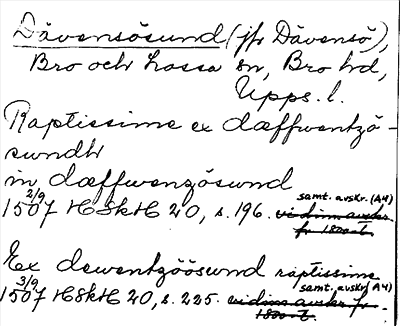 Dävensösund (jfr Dävensö),
Bro och Lossa sn, Bro hd,
Upps. l.
Raptissime ex dæffwentzö-
swndh
in dæffwenzöswnd
1507 2/9 HSkH 20, s. 196. vidim. avskr. samt. avskr. (A4)
fr. 1800-t.
Ex dewentzööswnd raptissime
1507 3/9 HSkH 20, s. 225. vidim. avskr. fr. samt. avskr. A4)
1800-t.